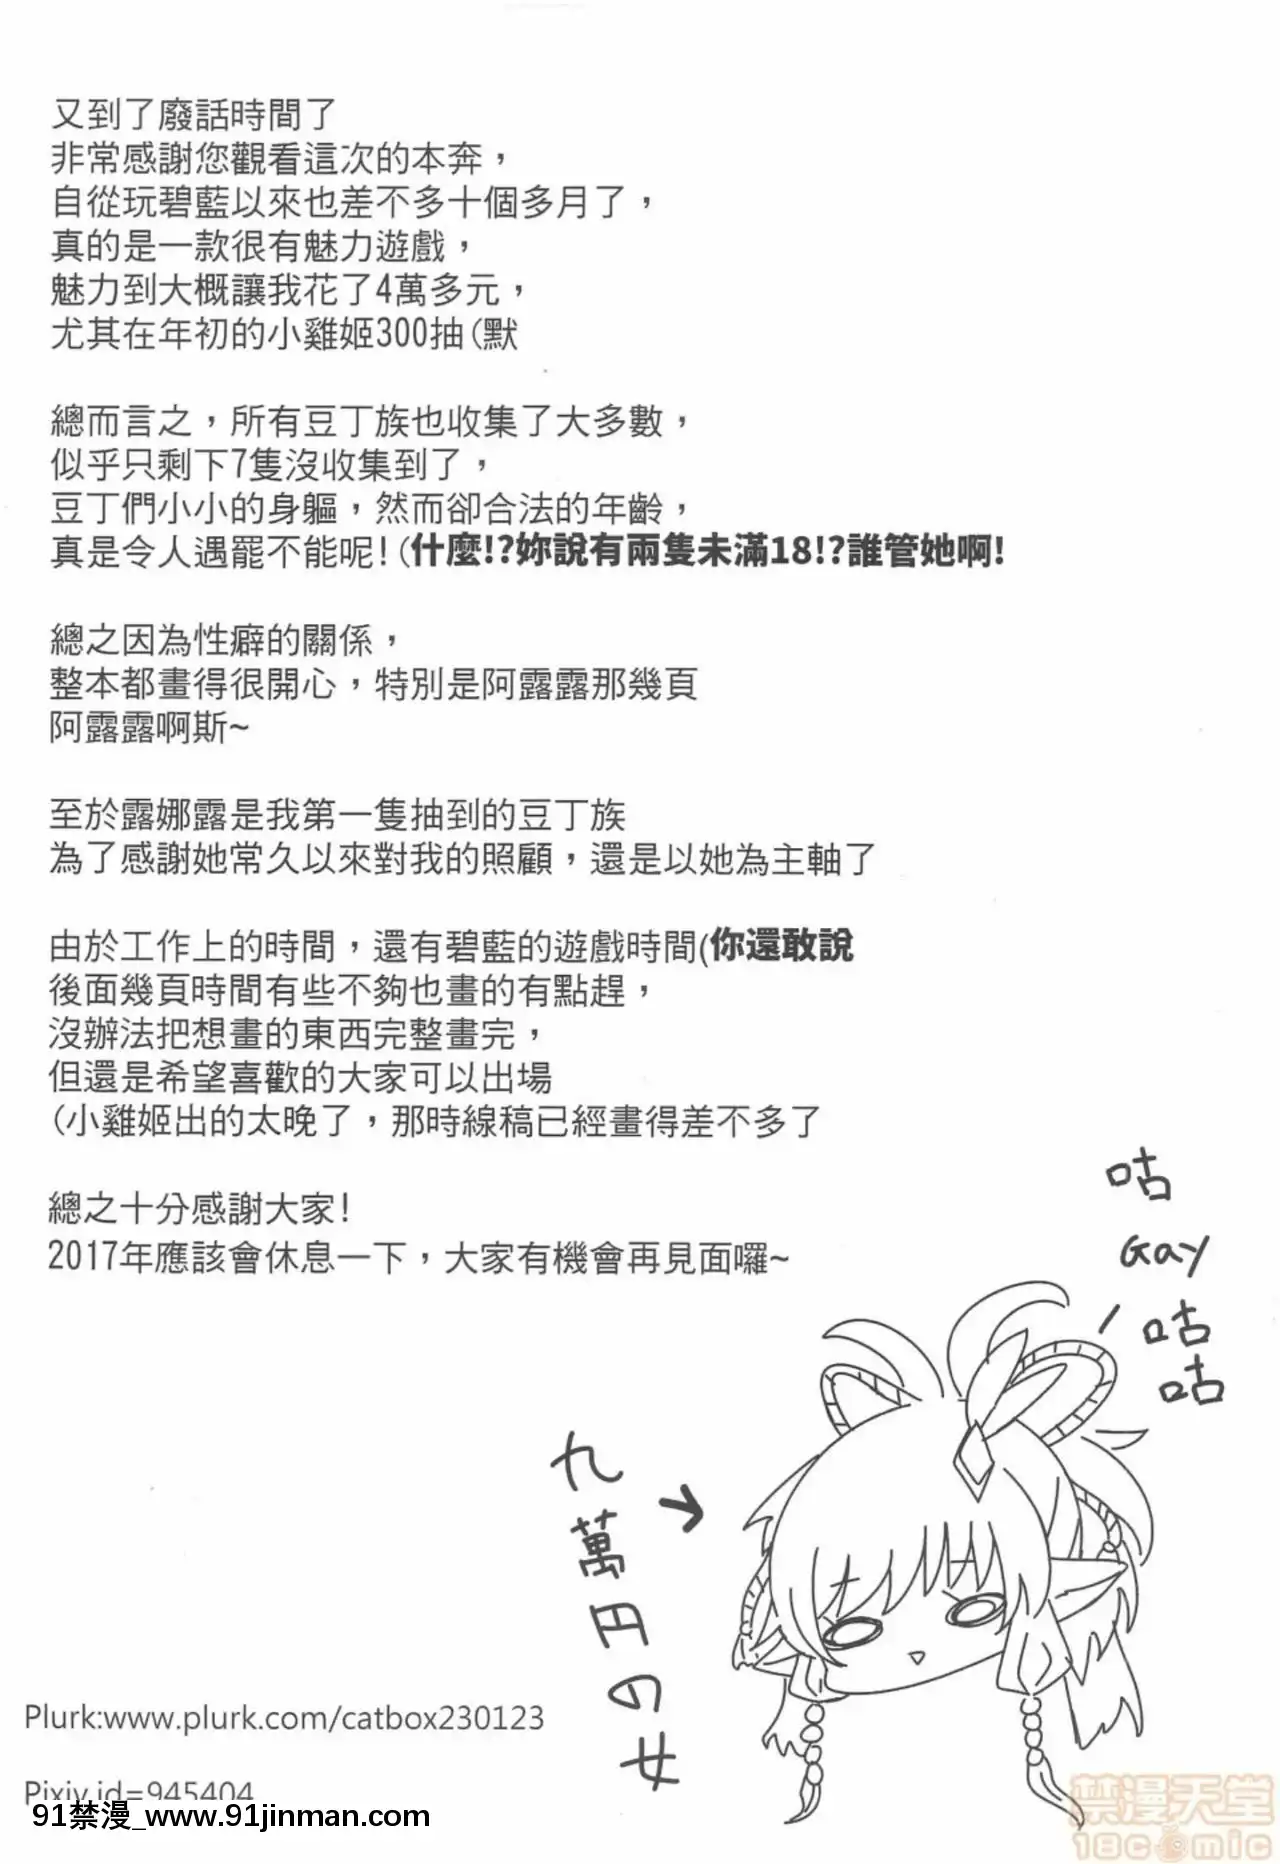 又到了廢話時間了
非常感謝您觀看這次的本奔，
自從玩碧藍以來也差不多十個多月了，
真的是一款很有魅力遊戲，
魅力到大概讓我花了4萬多元，
尤其在年初的小雞姬300抽(默
總而言之，所有豆丁族也收集了大多數，
似乎只剩下7隻沒收集到了，
豆丁們小小的身軀，然而卻合法的年齡，
真是令人遇罷不能呢!(什麼!?妳說有兩隻未滿18!?誰管她啊!
總之因為性癖的關係，
整本都畫得很開心，特別是阿露露那幾頁
阿露露啊斯~
至於露娜露是我第一隻抽到的豆丁族
為了感謝她常久以來對我的照顧，還是以她為主軸了
由於工作上的時間，還有碧藍的遊戲時間(你還敢說
後面幾頁時間有些不夠也畫的有點趕，
沒辦法把想畫的東西完整畫完，
但還是希望喜歡的大家可以出場
(小雞姬出的太晚了，那時線稿已經畫得差不多了
總之十分感謝大家!
2017年應該會休息一下，大家有機會再見面囉~
咕
Gay
咕
咕
九萬円の女
Plurk:www.plurk.com/catbox230123
Pixiv id=945404
91禁漫_www.91jinman.com
禁漫天堂
18comic